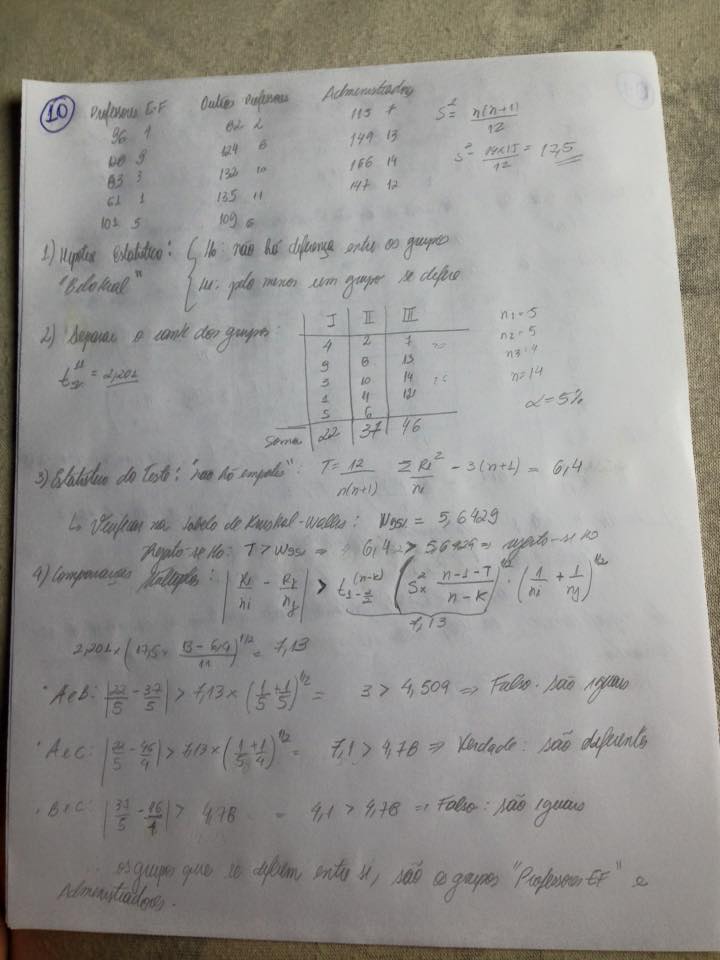 10 Professores E.F Outros Professores Administrados
96 4 82 2 115 7 S² = n(n+1)/12
128 9 124 8 149 13
83 3 132 10 166 14 S² = 14x15/12 = 17,5
61 1 135 11 147 12
101 5 109 6
1) Hipótese Estatística: { Ho: não há diferença entre os grupos
"Bilateral" H1: pelo menos um grupo se difere
2) Separar o rank dos grupos: I II III n1=5
4 2 7 n2=5
t 11 = 2,201 9 8 13 n3=4
3 10 14 n=14
1 11 12
5 6 α=5%
Soma 22 37 46
3) Estatística do Teste: "não há empates": T= 12/n(n+1) Σ Ri²/ni - 3(n+1) = 6,4
↳ Verificar na tabela de Kruskal-Wallis: W95% = 5,6429
Rejeito-se Ho: T > W95% = 6,4 > 5,6429 => rejeito-se Ho
4) Comparações Múltiplas: |Ri/ni - Rj/nj| > t(n-k) 1-α/2 (S²x n-1-T/n-k)^1/2 · (1/ni + 1/nj)^1/2
7,13
2,201 x (17,5 x 13-6,4/11)^1/2 = 7,13
· A e B: |22/5 - 37/5| > 7,13 x (1/5 + 1/5)^1/2 = 3 > 4,509 => Falso. são iguais
· A e C: |22/5 - 46/4| > 7,13 x (1/5 + 1/4)^1/2 = 7,1 > 4,78 => Verdade: são diferentes
· B e C: |37/5 - 46/4| > 4,78 = 4,1 > 4,78 => Falso: são iguais
os grupos que se diferem entre si, são os grupos "Professores EF" e
Administradores.